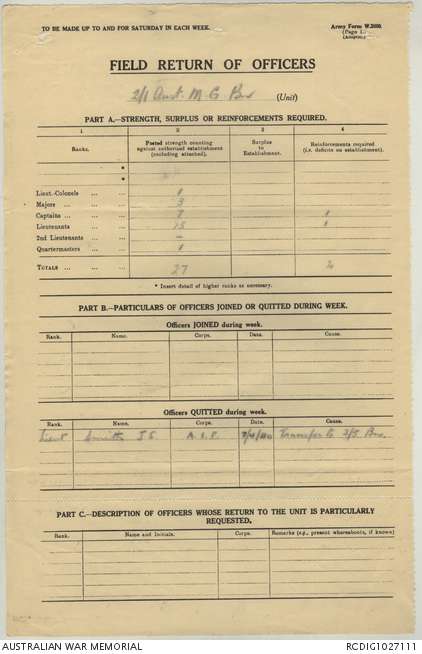 TO BE MADE UP TO AND FOR SATURDAY IN EACH WEEK.
Army Form W.3008.
(Page 1.)
(Adapted.)
FIELD RETURN OF OFFICERS
2/1 Aust. M G Bn (Unit)
PART A.—STRENGTH, SURPLUS OR REINFORCEMENTS REQUIRED.
1 2 3 4
RANKS. Posted strength counting against authorised establishment (excluding attached). Surplus to Establishment. Reinforcements required (i.e. deficits on establishment).
*
*
Lieut.-Colonels ... ... 1
Majors ... ... ... 3
Captains ... ... ... 7 1
Lieutenants ... ... 15 1
2nd Lieutenants ... ... –
Quartermasters ... ... 1
TOTALS ... ... ... 27 2
* Insert detail of higher ranks as necessary.
PART B.—PARTICULARS OF OFFICERS JOINED OR QUITTED DURING WEEK.
Officers JOINED during week.
Rank. Name. Corps. Date. Cause.
Officers QUITTED during week.
Rank. Name. Corps. Date. Cause.
Lieut Smith J.S. A.I.F. /40 Transfer to 2/5 Bn.
PART C.—DESCRIPTION OF OFFICERS WHOSE RETURN TO THE UNIT IS PARTICULARLY REQUESTED.
Rank. Name and Initials. Corps. Remarks (e.g., present whereabouts, if known)
AUSTRALIAN WAR MEMORIAL
RCDIG1027111